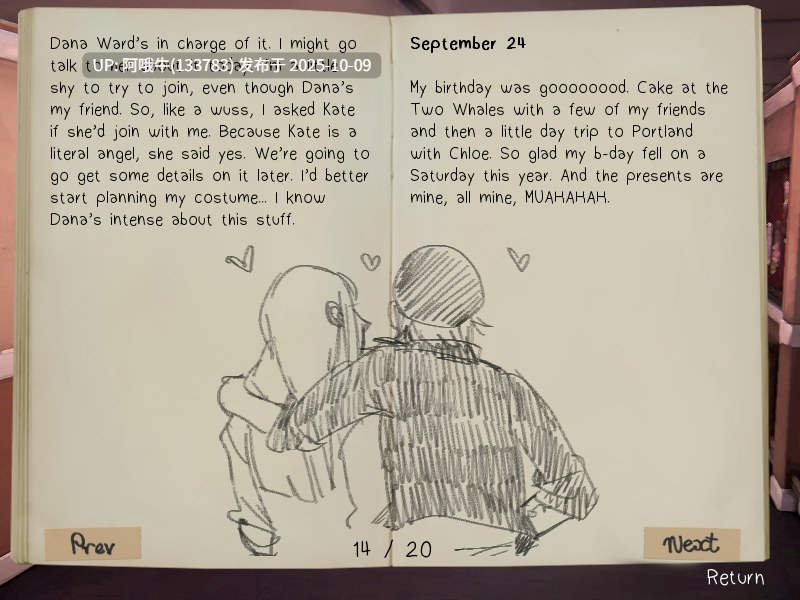 Dana Ward's in charge of it. I might go
talk
UP: 阿哦牛(133783) 发布于 2025-10-09
shy to try to join, even though Dana's
my friend. So, like a wuss, I asked Kate
if she'd join with me. Because Kate is a
literal angel, she said yes. We're going to
go get some details on it later. I'd better
start planning my costume... I know
Dana's intense about this stuff.
September 24
My birthday was goooooood. Cake at the
Two Whales with a few of my friends
and then a little day trip to Portland
with Chloe. So glad my b-day fell on a
Saturday this year. And the presents are
mine, all mine, MUAHAHAH.
Prev
14 / 20
Next
Return